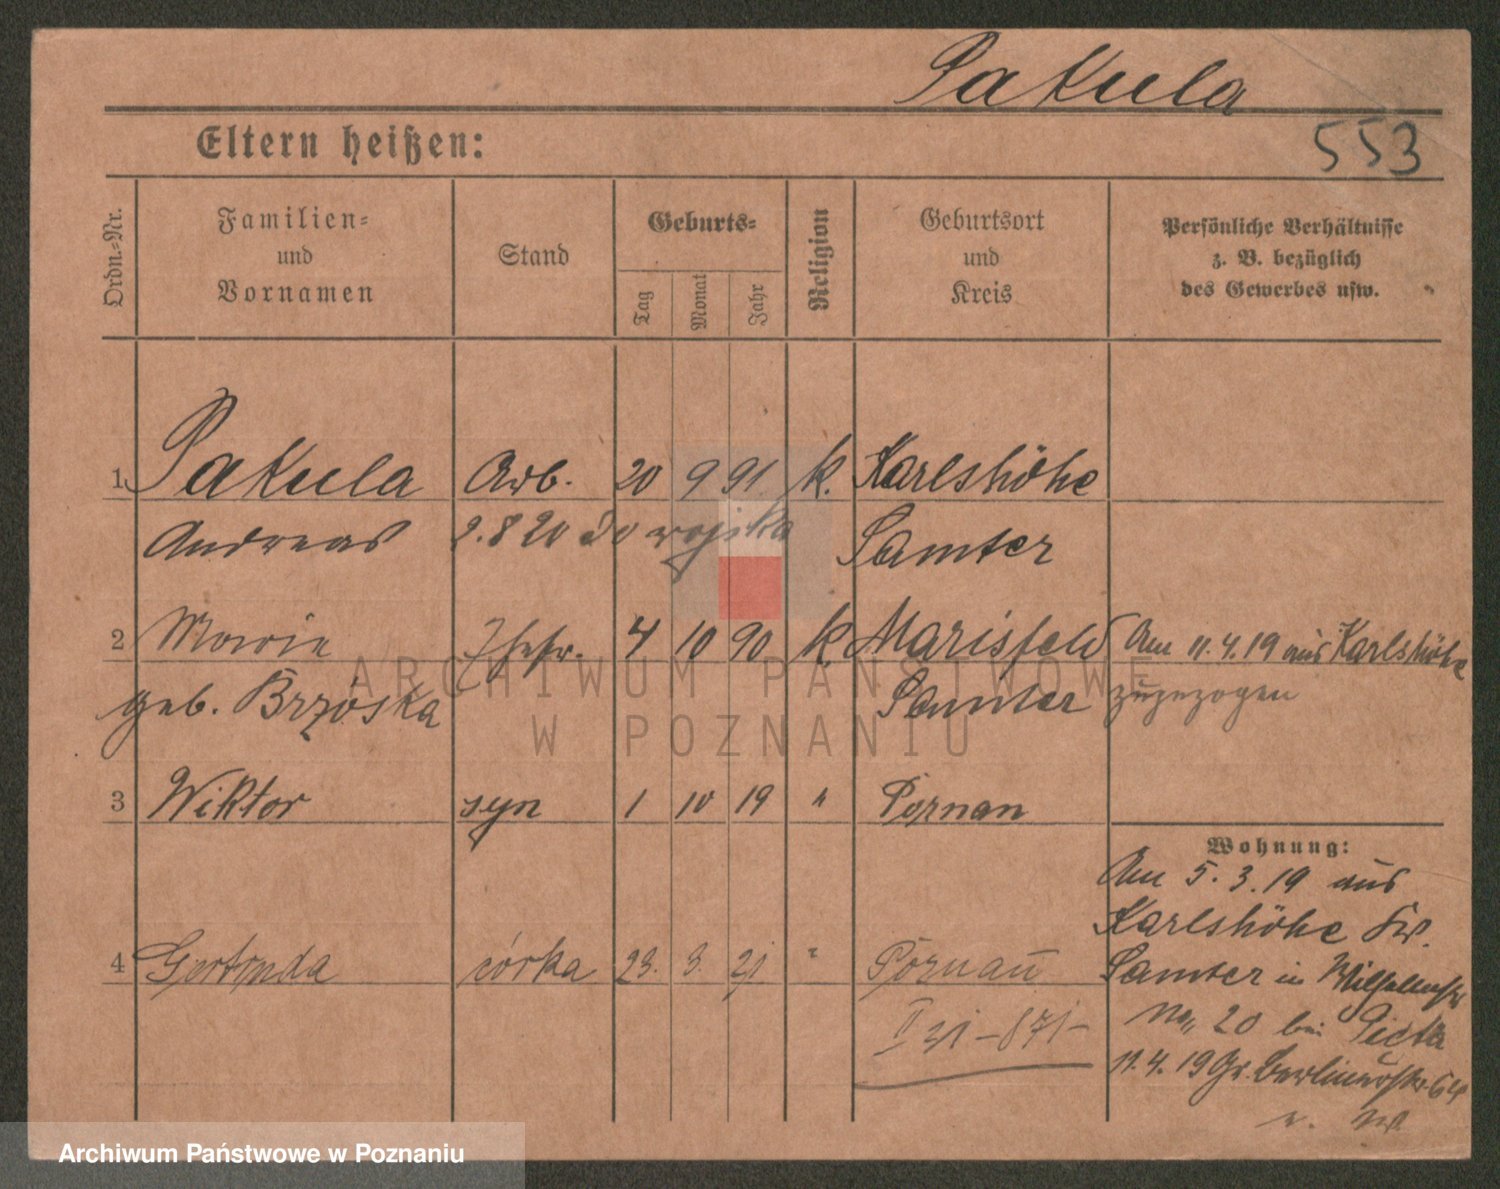 Pakula
553
Eltern heißen:
Ordn.-Nr.
Familien-
und
Vornamen
Stand
Geburts-
Tag
Monat
Jahr
Religion
Geburtsort
und
Kreis
Persönliche Verhältnisse
z. B. bezüglich
des Gewerbes usw.
1 Pakula Arb. 20 9 91 k. Karlshöhe
Andreas 2.8 20 do wojska Samter
2 Marie Ehefr. 4 10 90 k. Marisfeld Am 11.4.19 aus Karlshöhe
geb. Brzóska Samter zugezogen
3 Wiktor syn 1 10 19 " Poznan
Wohnung:
Am 5.3.19 aus
Karlshöhe Kr.
4 Gertruda córka 23. 3. 21 " Poznań
Samter in Wilhelmstr
No 20 bei
II 21-871-
11.4.19 Gr. Berlinerstr.
ARCHIWUM PAŃSTWOWE
W POZNANIU
Archiwum Państwowe w Poznaniu